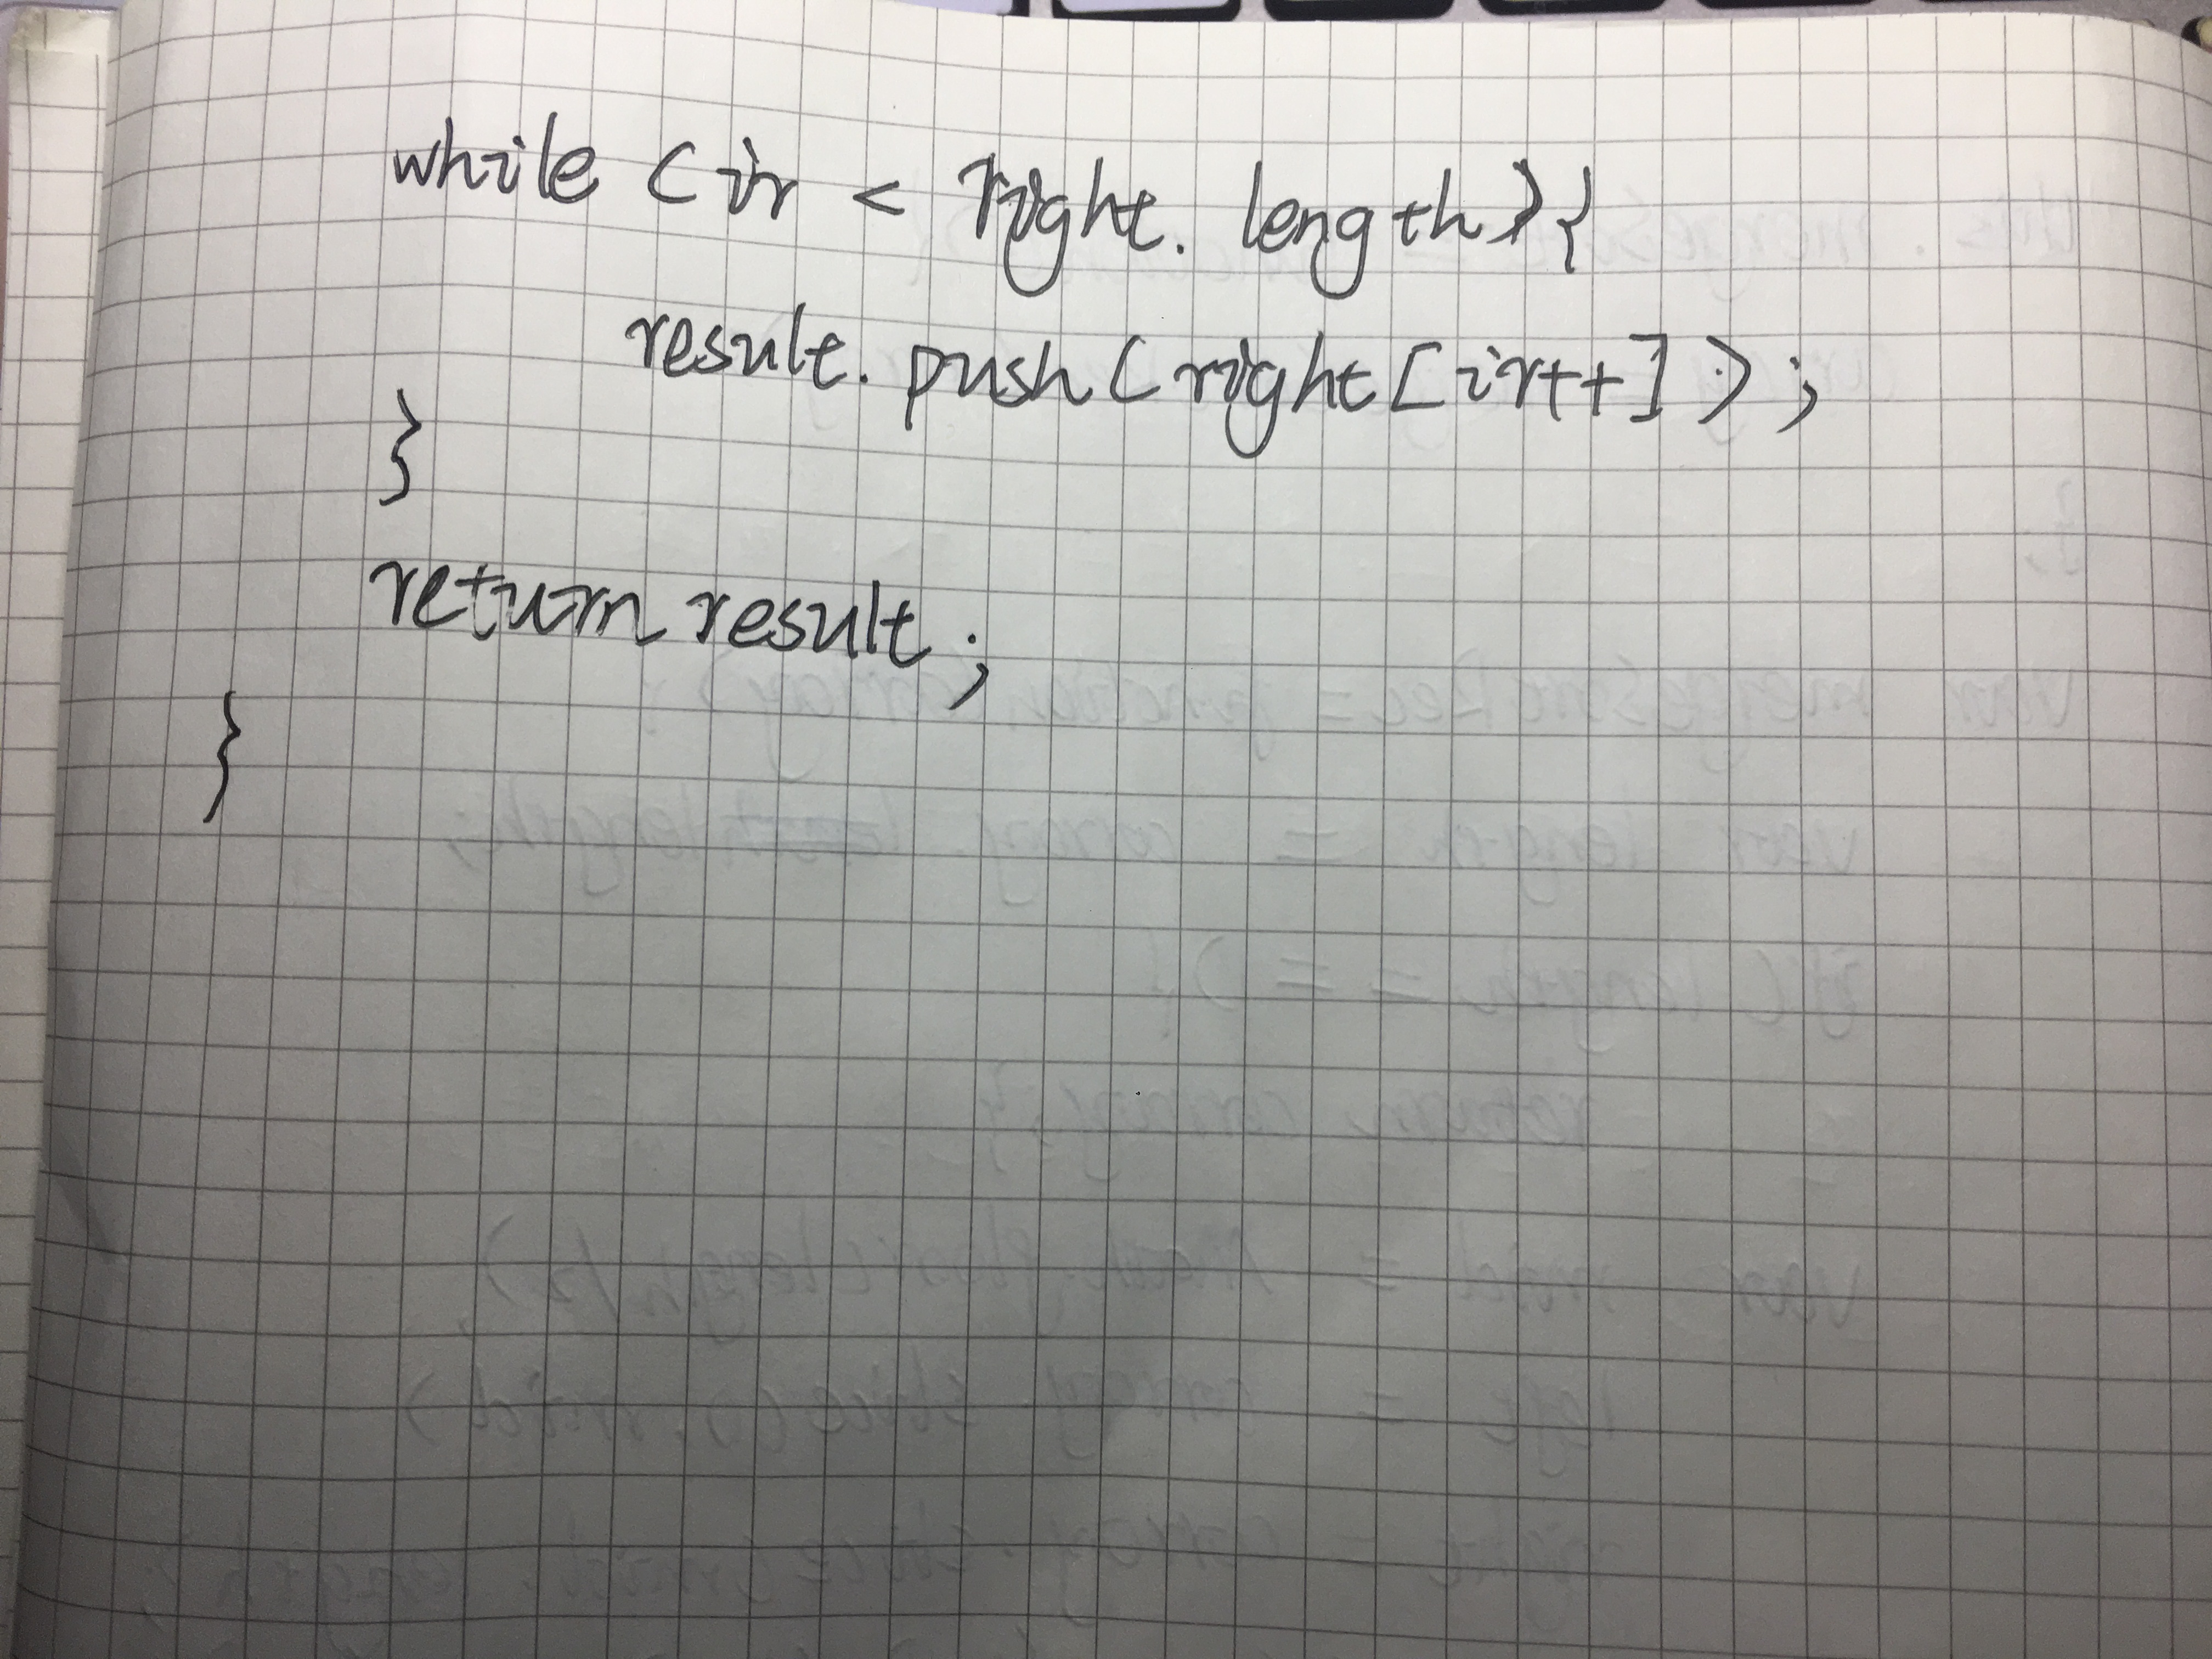 while (ir < right.length){
result.push(right[ir++]);
}
return result;
}